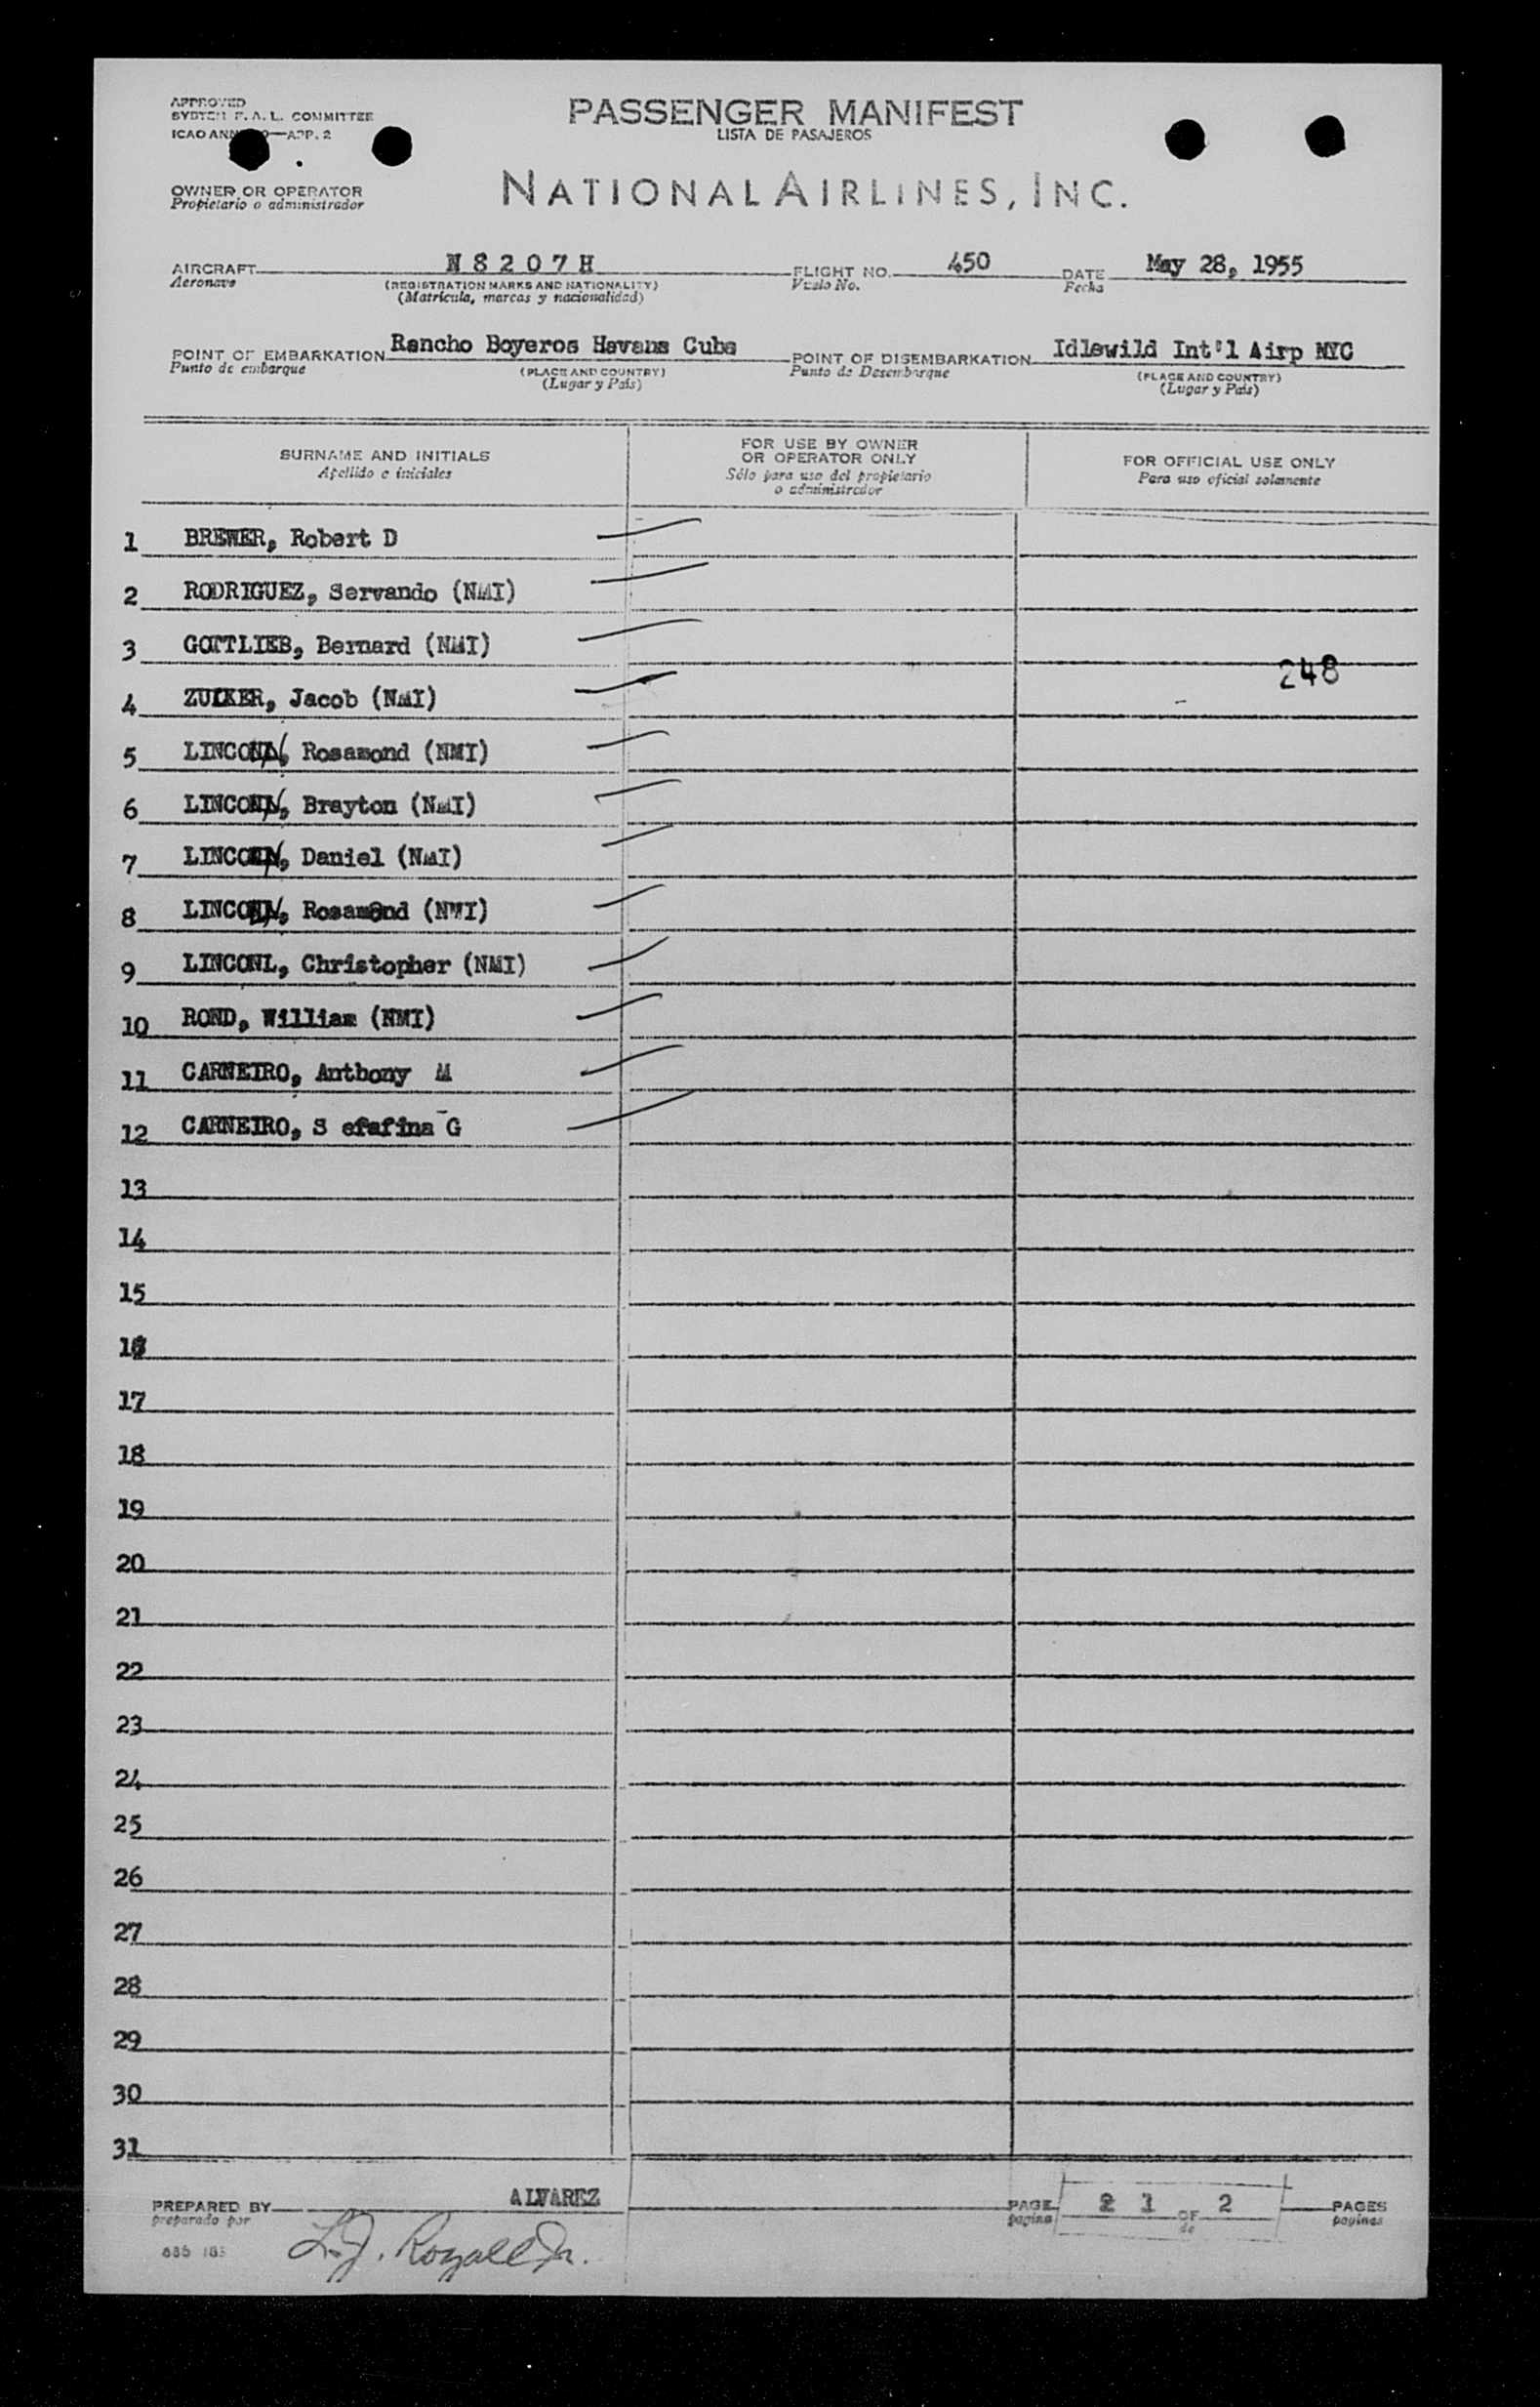 APPROVED
SYSTEM F. A. L. COMMITTEE
ICAO ANN 9—APP. 2
PASSENGER MANIFEST
LISTA DE PASAJEROS
OWNER OR OPERATOR
Propietario o administrador
NATIONAL AIRLINES, INC.
AIRCRAFT N 8 2 0 7 H FLIGHT NO. 450 DATE May 28, 1955
Aeronave (REGISTRATION MARKS AND NATIONALITY) Vuelo No. Fecha
(Matrícula, marcas y nacionalidad)
POINT OF EMBARKATION Rancho Boyeros Havana Cuba POINT OF DISEMBARKATION Idlewild Int'l Airp NYC
Punto de embarque (PLACE AND COUNTRY) Punto de Desembarque (PLACE AND COUNTRY)
(Lugar y País) (Lugar y País)
SURNAME AND INITIALS
Apellido e iniciales
FOR USE BY OWNER
OR OPERATOR ONLY
Sólo para uso del propietario
o administrador
FOR OFFICIAL USE ONLY
Para uso oficial solamente
1 BREWER, Robert D
2 RODRIGUEZ, Servando (NMI)
3 GOTTLIEB, Bernard (NMI)
248
4 , Jacob (NMI)
5 , Rosamond (NMI)
6 , Brayton (NMI)
7 , Daniel (NMI)
8 , Rosamond (NMI)
9 LINCONL, Christopher (NMI)
10 ROND, William (NMI)
11 CARNEIRO, Anthony M
12 CARNEIRO, S efafina G
13
14
15
16
17
18
19
20
21
22
23
24
25
26
27
28
29
30
31
PREPARED BY ALVAREZ PAGE 1 OF 2 PAGES
preparado por pagina de paginas
L.J.